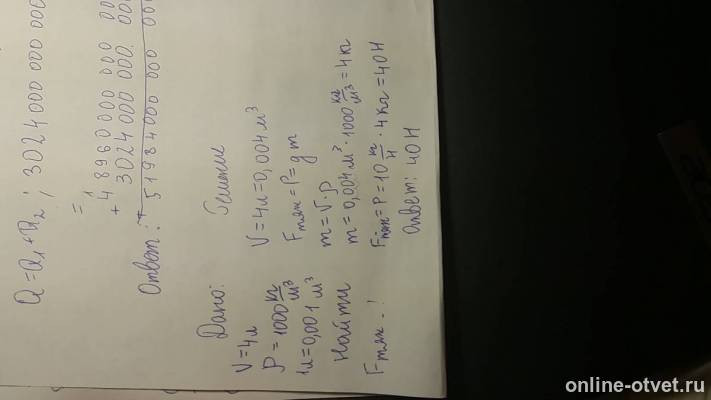 Q = Q₁ + Q₂ ; 3024 000 000 000
=
+ 48960000 000 00
3024 000 000. 00
Ответ: 51984000 000 00
Дано:
V = 4л
ρ = 1000 кг/м³
1л = 0,001 м³
Найти
Fтяж - ?
Решение
V = 4л = 0,004 м³
Fтяж = P = gm
m = V·ρ
m = 0,004 м³ · 1000 кг/м³ = 4кг
Fтяж = P = 10 кг/Н · 4кг = 40Н
Ответ: 40Н
online-otvet.ru